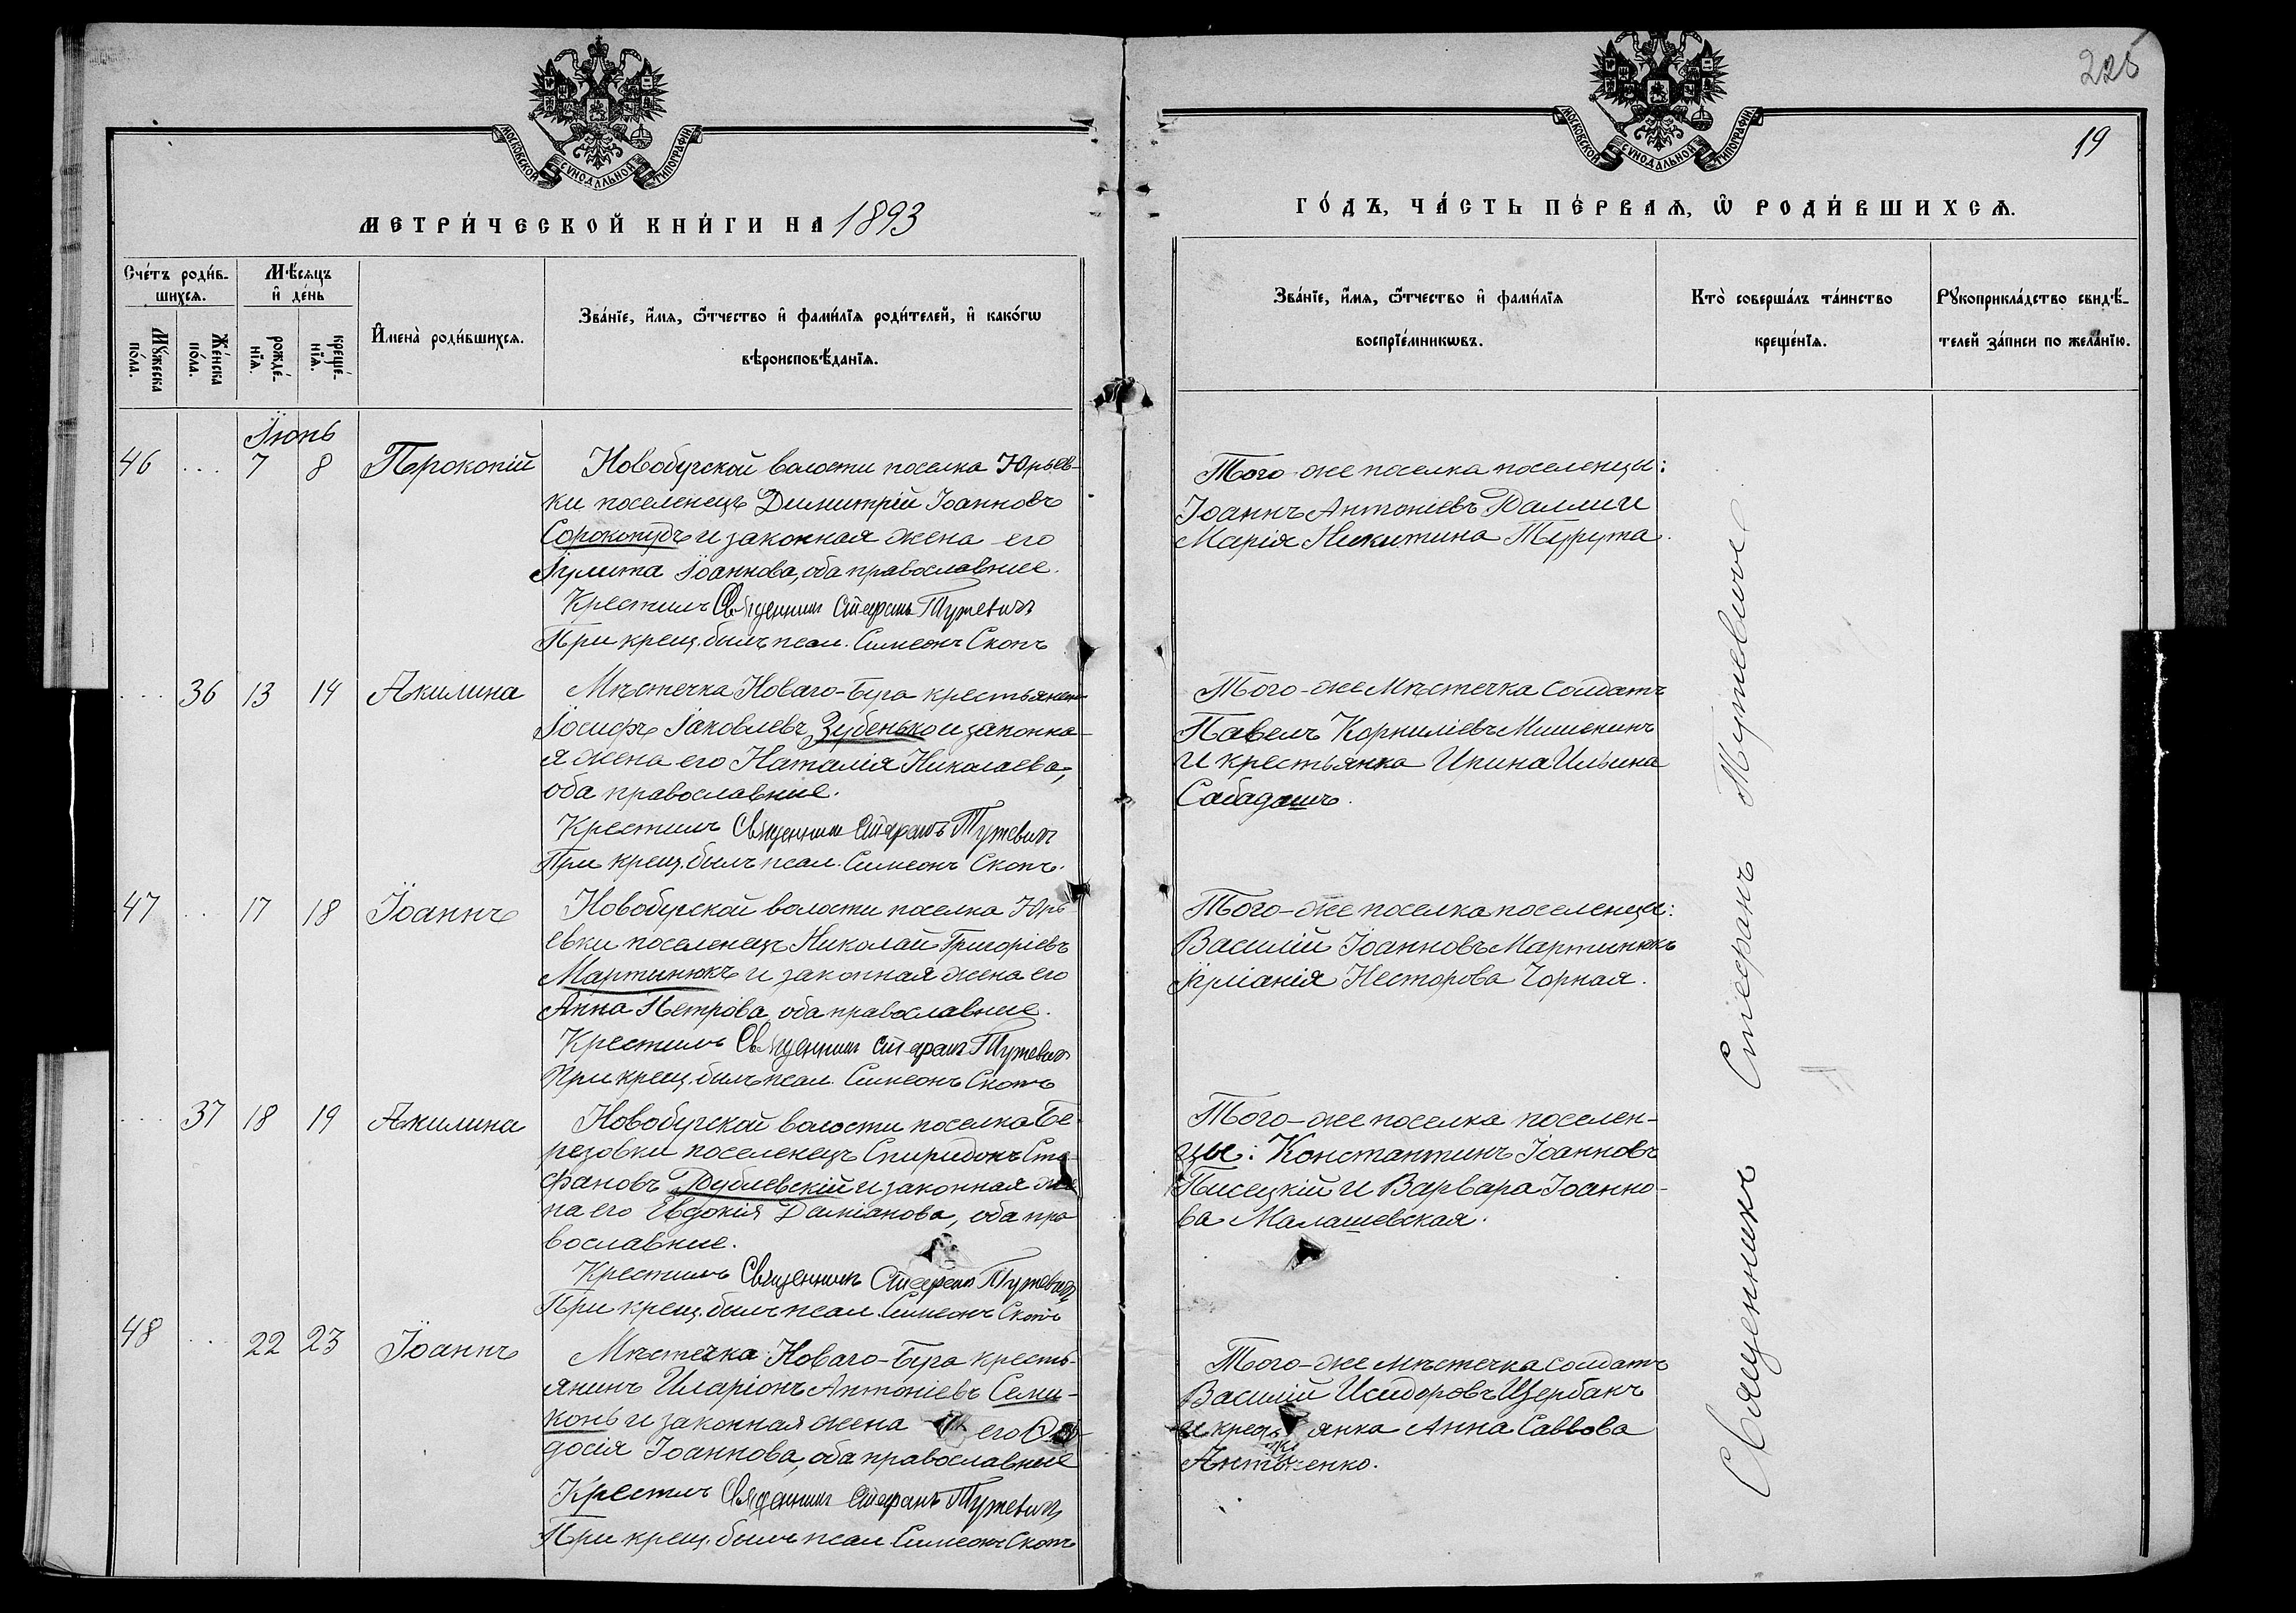 225
19
МОСКОВСКОЙ СѴНОДАЛЬНОЙ ТИПОГРАФІИ
МОСКОВСКОЙ СѴНОДАЛЬНОЙ ТИПОГРАФІИ
МЕТРИ́ЧЕСКОЙ КНИ́ГИ НА 1893
ГО́ДЪ, ЧА́СТЬ ПЕ́РВАѦ, Ѡ҆ РОДИ́ВШИХСѦ.
Сче́тъ роди́в-
шихсѧ.
Мꙋ́жеска по́ла.
Же́нска по́ла.
Мѣ́сѧцъ
и҆ де́нь
рожде́-
нїѧ.
креще́-
нїѧ.
И҆мена̀ роди́вшихсѧ.
Зва́нїе, и҆́мѧ, ѻ҆́тчество и҆ фами́лїѧ роди́телей, и҆ како́гѡ
вѣроисповѣ́данїѧ.
Зва́нїе, и҆́мѧ, ѻ҆́тчество и҆ фами́лїѧ
воспрїе́мникѡвъ.
Кто̀ соверша́лъ та́инство
креще́нїѧ.
Рꙋкоприкла́дство свидѣ́-
телей за́писи по жела́нїю.
Іюнь
46 ... 7 8 Прокопій
Новобугской волости поселка Юрьев-
ки поселенецъ Димитрій Іоанновъ
Сорокопудъ и законная жена его
Іулита Іоаннова, оба православные.
Крестилъ Священникъ Стефанъ Тужевичъ
При крещ. былъ псал. Симеонъ Скопъ
Того-же поселка поселенцы:
Іоаннъ Антоніевъ и
Марія Никитина Турута.
... 36 13 14 Акилина
Мѣстечка Новаго-Буга крестьянинъ
Іосифъ Іаковлевъ Зубенько и законна-
я жена его Наталія Николаева,
оба православные.
Крестилъ Священникъ Стефанъ Тужевичъ
При крещ. былъ псал. Симеонъ Скопъ.
Того-же Мѣстечка солдатъ
Павелъ Корниліевъ Мишенинъ
и крестьянка Ирина Ильина
Сабадашъ.
47 ... 17 18 Іоаннъ
Новобугской волости поселка Юрь-
евки поселенецъ Николай Григоріевъ
Мартинюкъ и законная жена его
Анна Петрова, оба православные.
Крестилъ Священникъ Стефанъ Тужевичъ
При крещ. былъ псал. Симеонъ Скопъ
Того-же поселка поселенцы:
Василій Іоанновъ Мартинюкъ
Іуліанія Несторова Чорная.
... 37 18 19 Акилина
Новобугской волости поселка Бе-
резовки поселенецъ Спиридонъ Сте-
фановъ Дублевскій и законная же-
на его Евдокія Даміанова, оба пра-
вославные.
Крестилъ Священникъ Стефанъ Тужевичъ
При крещ. былъ псал. Симеонъ Скопъ
Того-же поселка поселен-
цы: Константинъ Іоанновъ
Писецкій и Варвара Іоанно-
ва Малашевская.
48 ... 22 23 Іоаннъ
Мѣстечка Новаго-Буга кресть-
янинъ Иларіонъ Антоніевъ Сели-
конь и законная жена его Ѳео-
досія Іоаннова, оба православные
Крестилъ Священникъ Стефанъ Тужевичъ
При крещ. былъ псал. Симеонъ Скопъ
Того-же мѣстечка солдатъ
Василій Исидоровъ Щербакъ
и крестьянка Анна Саввова
Антоненко.
Священникъ Стефанъ Тужевичъ